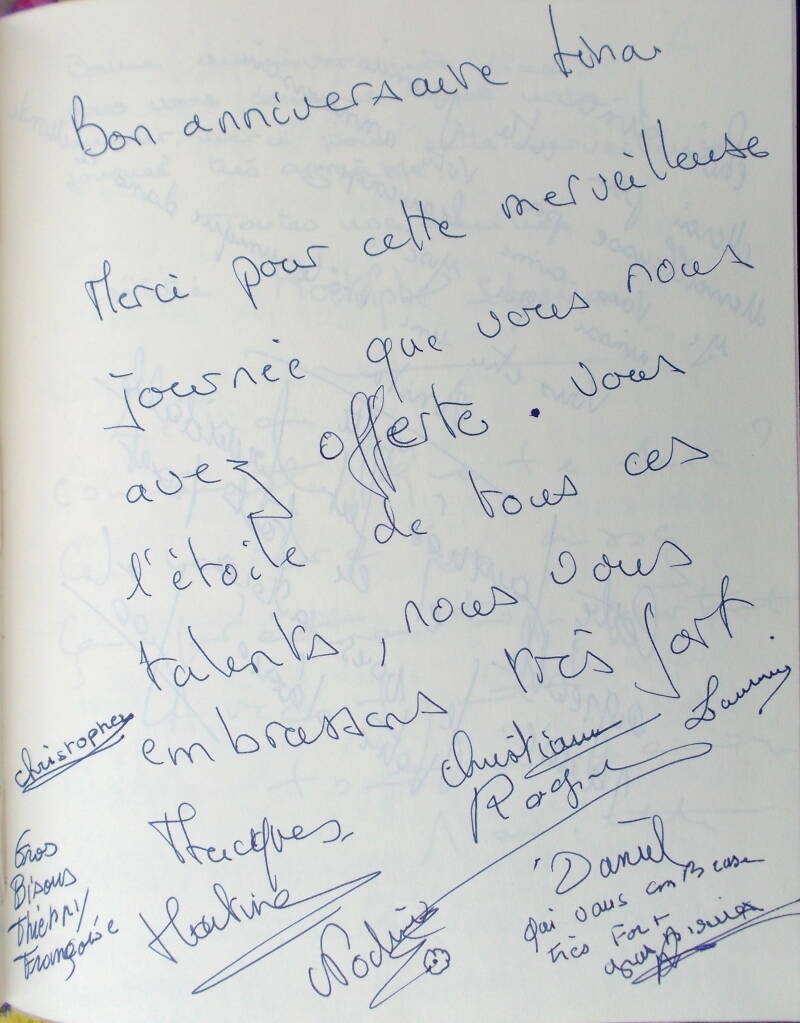 Bon anniversaire tina.
Merci pour cette merveilleuse
journée que vous nous
avez offerte. Vous
l'étoile de tous ces
talents, nous vous
embrassons très fort.
christophe
Christiane
Roger
Gros
Bisous
Thierry
Françoise
Martine
Daniel
qui vous embrasse
très Fort